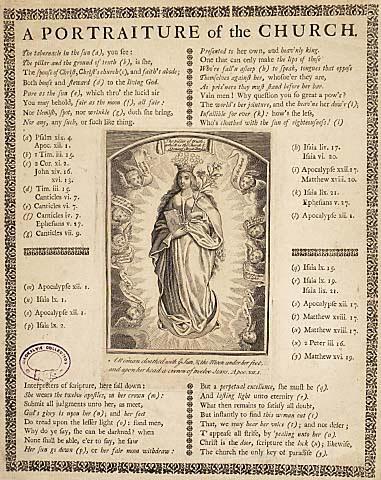 A PORTRAITURE of the CHURCH.
The tabernacle in the sun (a), you see:
The pillar and the ground of truth (b), is she,
The spouse of Christ, Christ's church (c), and faith's abode;
Both host and steward (d) to the living God.
Pure as the sun (e), which thro' the lucid air
You may behold, fair as the moon (f), all fair:
Nor blemish, spot, nor wrinkle (g), doth she bring,
Nor any, such, or such like thing.
Presented to her own, and heav'nly king.
One that can only make the lips of those
Where's full asleep (h) to speak, tongues that oppose
Themselves against her, whosoe'er they are,
As pris'ners they must stand before her bar.
Vain men! Why question you so great a pow'r?
The world's her jointure, and the heav'ns her dow'r (i);
Infallible for ever (k): how's she less,
Who's cloathed with the sun of righteousness? (l)
(a) Psalm xix. 4.
Apoc. xii. 1.
(b) 1 Tim. iii. 15.
(c) 2 Cor. xi. 2.
John xiv. 16.
xvi. 13.
(d) Tim. iii. 15.
Canticles vi. 7.
(e) Canticles vi. 7.
(f) Canticles iv. 7.
Ephesians v. 27.
(g) Canticles vii. 9.
(h) Isaia liv. 17.
Isaia vi. 20.
(i) Apocalypse xxii. 17.
Matthew xviii. 20.
(k) Isaia lix. 21.
Ephesians v. 27.
(l) Apocalypse xii. 1.
(m) Apocalypse xii. 1.
(n) Isaia lx. 1.
(o) Apocalypse xii. 1.
(p) Isaia lx. 2.
(q) Isaia lx. 15.
(r) Isaia lx. 19.
Isaia lix. 21.
(s) Apocalypse xii. 17.
(t) Matthew xviii. 17.
(u) Matthew xviii. 17.
(x) 2 Peter iii. 16.
(y) Matthew xvi. 19.
A Woman cloathed with ye Sun, & the Moon under her feet,
and upon her head a crown of twelve Stars, Apoc. XII. 1.
Interpreters of scripture, here fall down:
She wears the twelve apostles, as her crown (m):
Submit all judgments unto her, as meet,
God's glory is upon her (n); and her foot
Do tread upon the lesser light (o): fond men,
Why do ye say, she can be darkned? when
None shall be able, e'er to say, he saw
Her sun go down (p), or her fair moon withdraw:
But a perpetual excellence, she must be (q).
And lasting light unto eternity (r).
What then remains to satisfy all doubt,
But instantly to find this woman out (s)
That, we may hear her voice (t); and not defer;
T' appease all strife, by 'pealing unto her (u).
Christ is the door, scripture the lock (x); likewise,
The church the only key of paradise (y).